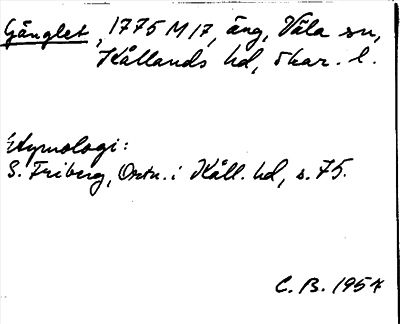 Gånglet, 1775 M 17, äng, Våla sn,
Kållands hd, Skar. l.
Etymologi:
S. Friberg, Ortn. i Kåll. hd, s. 75.
C. B. 1954